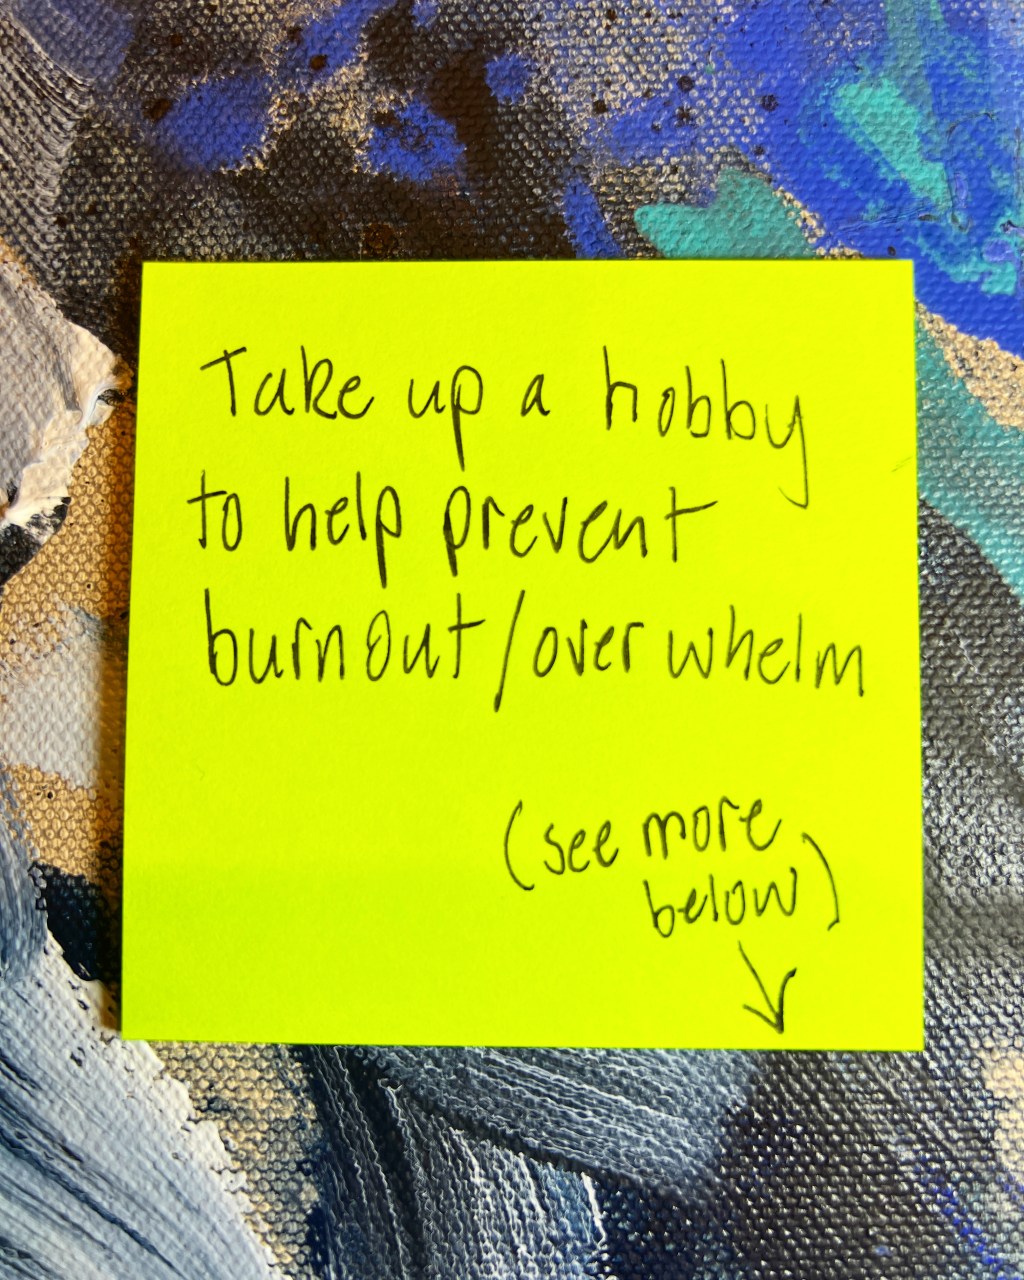 Take up a hobby
to help prevent
burnout/overwhelm
(see more
below)